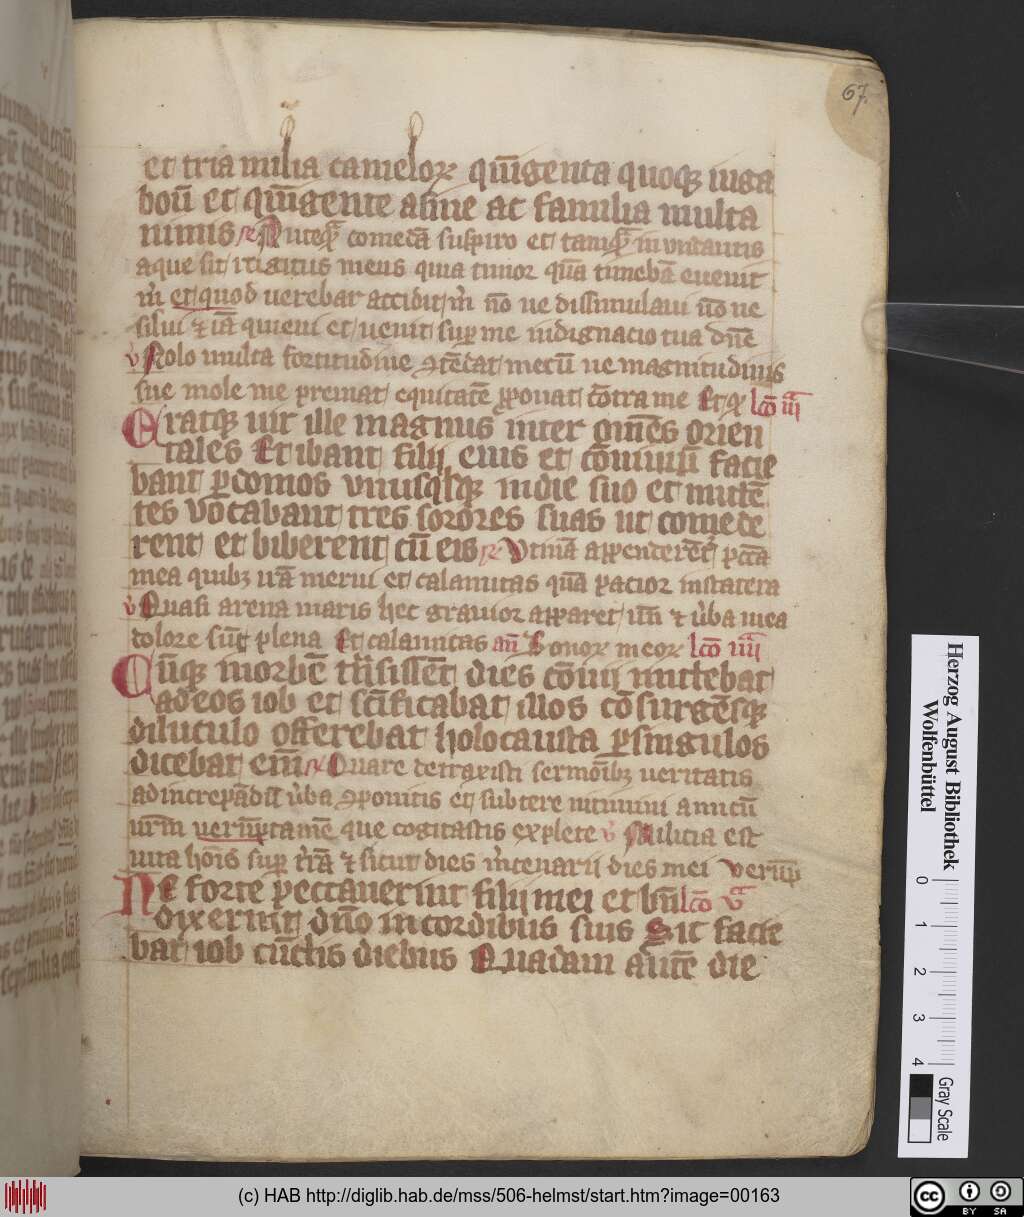 67
et tria milia camelorꝝ qui̅genta quoqꝫ iuga
bou̅ et qui̅gente asine ac familia multa
nimis ℟ Anteqᷓ comeda̅ suspiro et tamqᷓ inundantis
aque sic rugitus meus quia timor que̅ timeba̅ euenit
m̍ et quod uerebar accidit m̍ no̅ ne dissimulaui no̅ ne
silui ⁊ ia̅ quieui et uenit suꝑ me indignacio tua dn̅e
v̍ Nolo multa fortitudine ꝯte̅dat mecu̅ ne magnitudinis
sue mole me premat equitate̅ ꝓponat co̅tra me Et qͥ lc̅o iii
Eratqꝫ uir ille magnus inter om̅es orien
tales Et ibant filij eius et co̅uiuiu̅ facie
bant ꝑ domos unusqͥsqꝫ in die suo et mitte̅
tes vocabant tres sorores suas ut comede
rent et biberent cu̅ eis ℟ Utina̅ appendere̅t̅ pc̅c̅a
mea quibꝫ ira̅ merui et calamitas qua̅ pacior in statera
v̍ Quasi arena maris hec grauior appareret un̅ ⁊ v̍ba mea
dolore su̅t plena Et calamitas an̅ Bonorꝝ meorꝝ lc̅o iiii
Cu̅qꝫ in orbe̅ tra̅sissent dies co̅uiuii mittebat
ad eos iob et sc̅ificabat illos co̅surge̅sqꝫ
diluculo offerebat holocausta ꝑ singulos
dicebat eni̅ ℟ Quare detraxisti sermo̅ibꝫ ueritatis
ad increpa̅du̅ v̍ba ꝯponitis et subuertere nitimini amicu̅
ur̅m ueru̅pta̅me̅ que cogitastis explete v̍ Milicia est
uita ho̅is suꝑ t̍ra̅ ⁊ sicut dies m̍cenarii dies mei Veru̅p̅
Ne forte peccauerint filij mei et bn̅ lc̅o v
dixerint dn̅o in cordibus suis Sic facie
bat iob cu̅ctis diebus Quadam aute̅ die
Herzog August Bibliothek
Wolfenbüttel
0 1 2 3 4
Gray Scale
(c) HAB http://diglib.hab.de/mss/506-helmst/start.htm?image=00163
cc BY SA